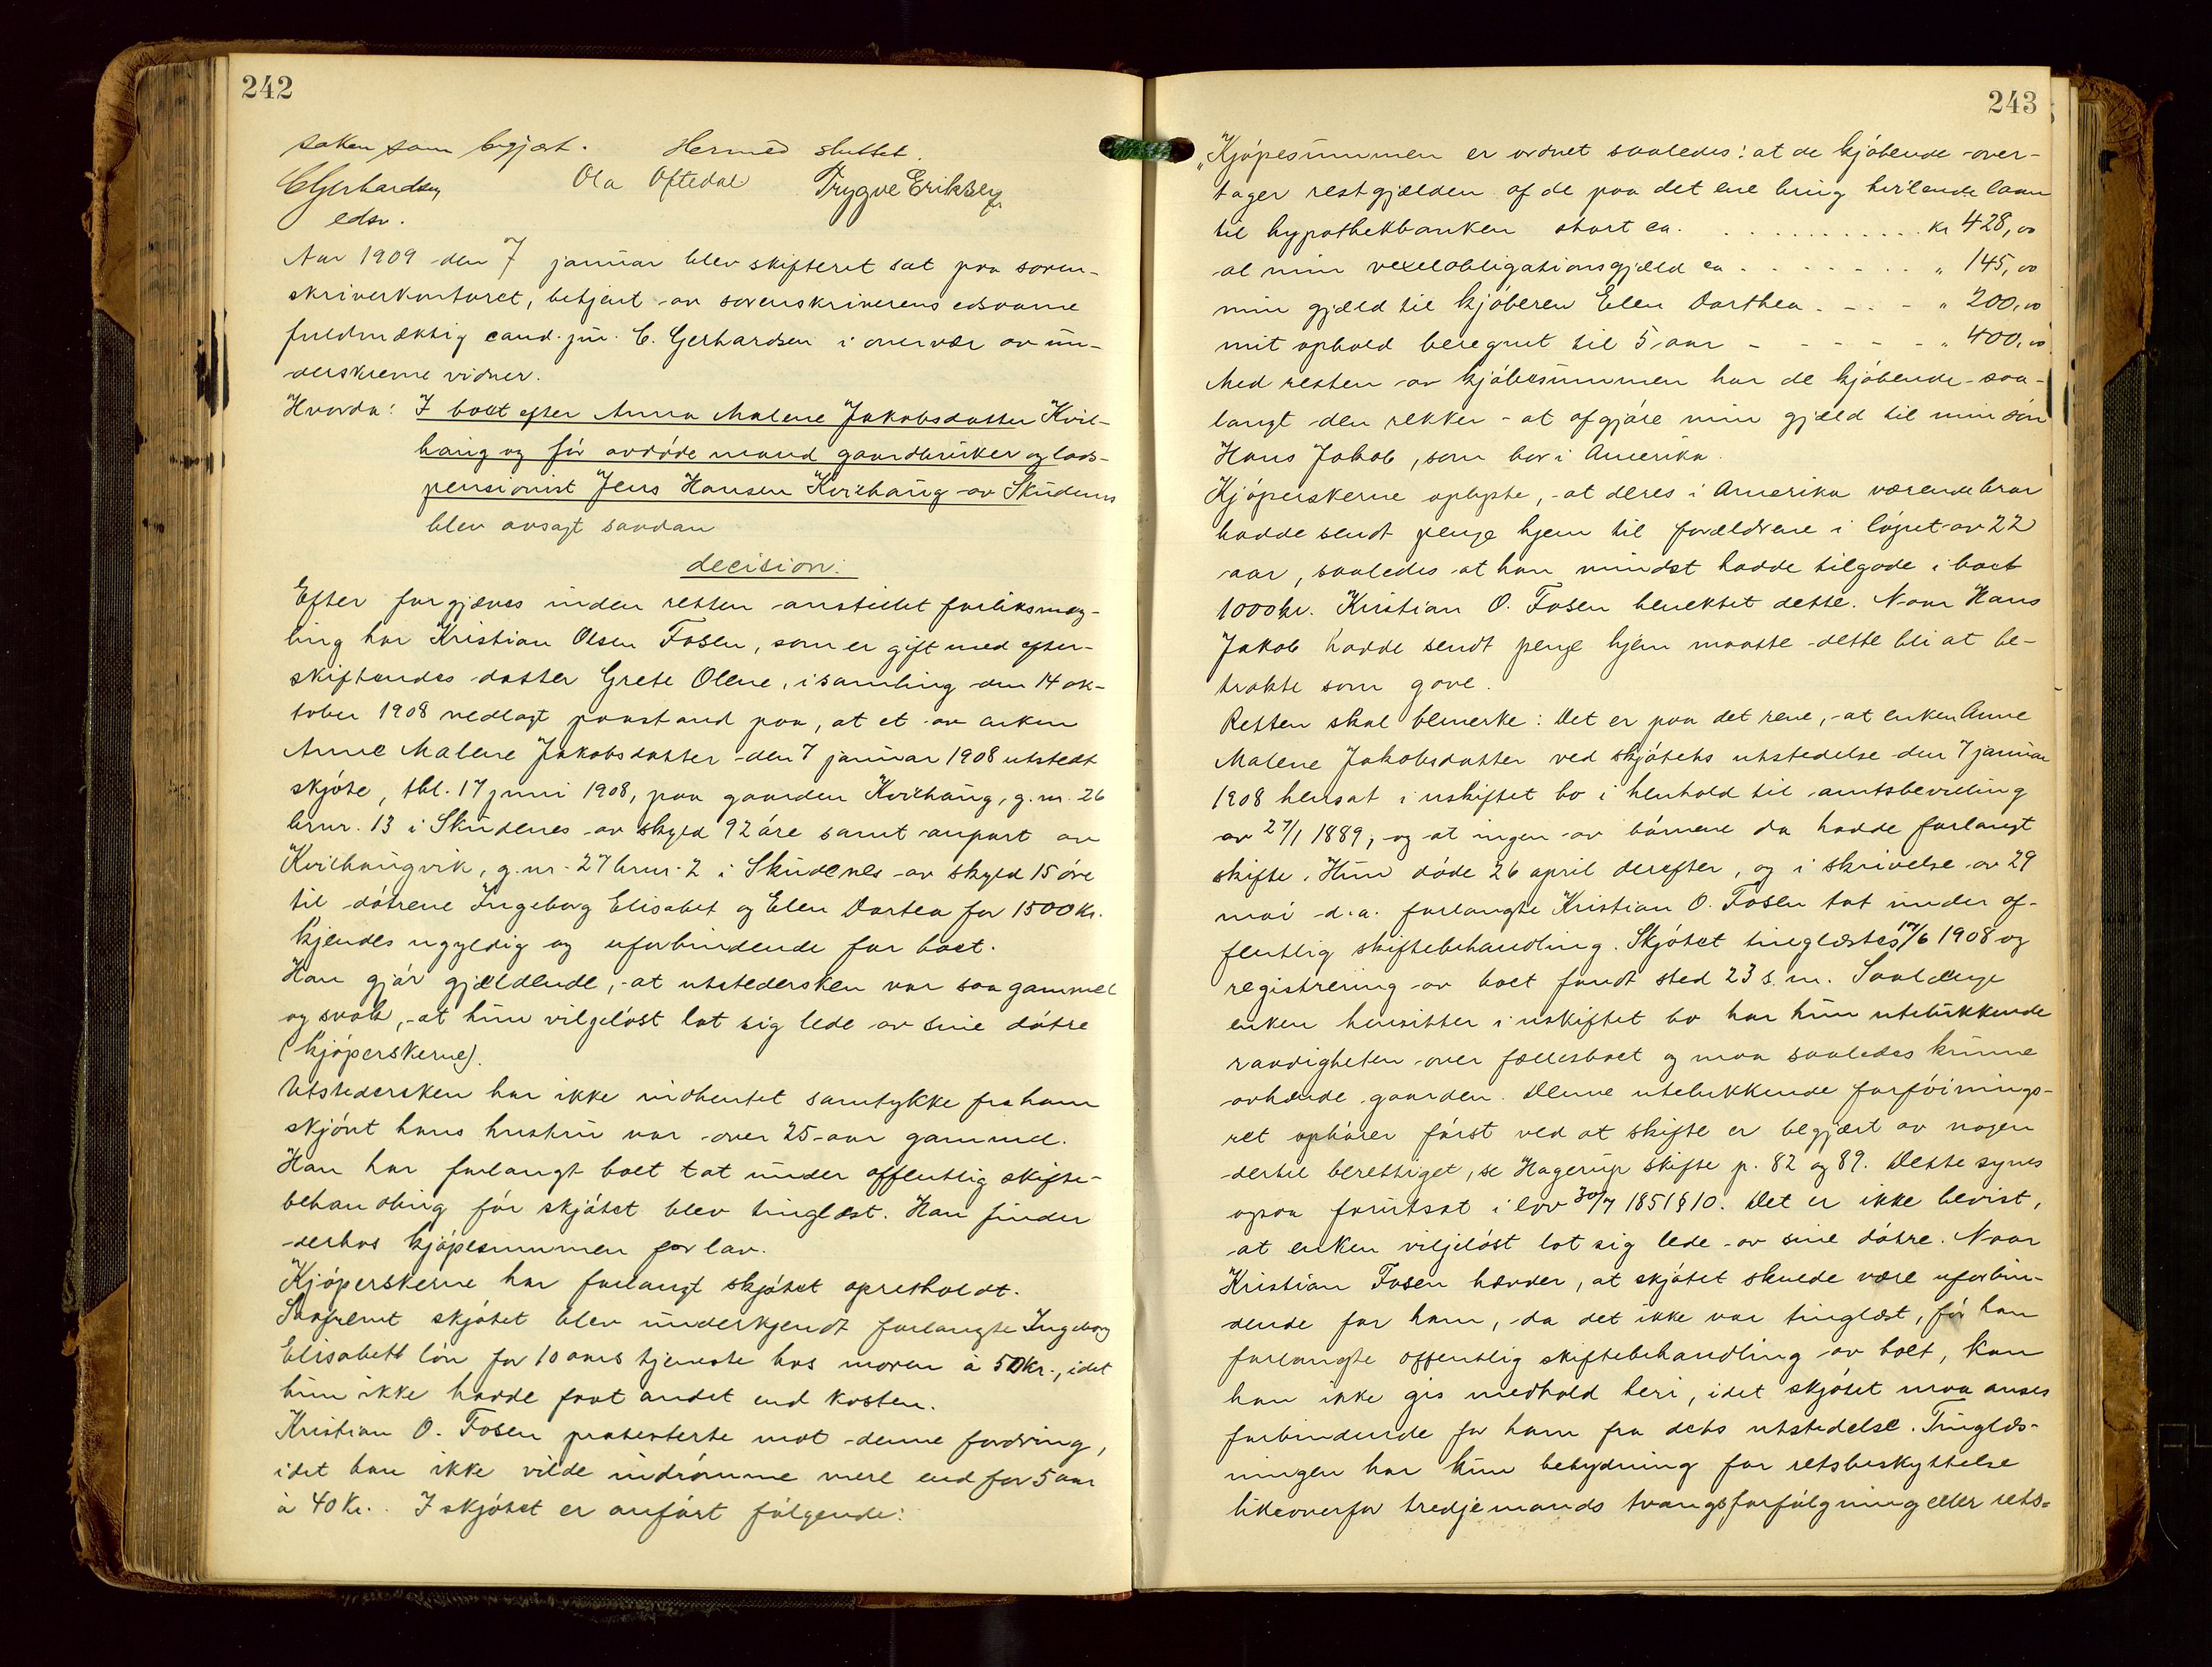 242
saken som begjært. Hermed sluttet.
CGerhardsen Ola Oftedal Trygve Eriksen
edsv.
Aar 1909 den 7 januar blev skifteret sat paa soren-
skriverkontoret, betjent av sorenskriverens edsvorne
fuldmægtig cand. jur. C. Gerhardsen i overvær av un-
derskrevne vidner.
Hvorda: I boet efter Anna Malene Jakobsdatter Kvil-
haug og før avdøde mand gaardbruker og lods-
pensionist Jens Hansen Kvilhaug av Skudenes
blev avsagt saadan
decision:
Efter forgjæves inden retten anstillet forliksmæg-
ling har Kristian Olsen Fosen, som er gift med efter-
skiftendes datter Grete Olene, i samling den 14 ok-
tober 1908 nedlagt paastand paa, at et av enken
Anne Malene Jakobsdatter den 7 januar 1908 utstedt
skjøte, tbl. 17 juni 1908, paa gaarden Kvilhaug, g.nr. 26
brnr. 13 i Skudenes av skyld 92 øre samt anpart av
Kvilhaugvik, g.nr. 27 brnr. 2 i Skudenes av skyld 15 øre
til døtrene Ingeborg Elisabet og Elen Dortea for 1500 kr.
kjendes ugyldig og uforbindende for boet.
Han gjør gjældende, at utstedersken var saa gammel
og svak, at hun vilgeløst lot sig lede av sine døtre
(kjøperskerne).
Utstedersken har ikke indhentet samtykke fra ham
skjønt hans hustru var over 25 aar gammel.
Han har forlangt boet tat under offentlig skifte-
behandling før skjøtet blev tinglæst. Han finder
derhos kjøpesummen for lav.
Kjøperskerne har forlangt skjøtet opretholdt.
Saafremt skjøtet blev underkjendt forlangte Ingeborg
Elisabett løn for 10 aars tjeneste hos moren à 50 kr., idet
hun ikke hadde faat andet end kosten.
Kristian O. Fosen protesterte mot denne fordring,
idet han ikke vilde indrømme mere end for 5 aar
à 40 kr. I skjøtet er anført følgende:
243
"Kjøpesummen er ordnet saaledes: at de kjøbende over-
tager restgjælden af de paa det ene brug hvilende laan
til hypothekbanken stort ca. . . . . . . . . . . kr 428,00
al min vexelobligationsgjæld ca . . . . . . . . " 145,00
min gjæld til kjøberen Elen Dorthea . - . - " 200,00
mit ophold beregnet til 5 aar - - - - - - " 400,00
Med resten av kjøbesummen har de kjøbende - saa-
langt den rekker - at afgjøre min gjæld til min søn
Hans Jakob, som bor i Amerika.
Kjøperskerne oplyste, at deres i Amerika værende bror
hadde sendt penge hjem til forældrene i løpet av 22
aar, saaledes at han mindst hadde tilgode i boet
1000 kr. Kristian O. Fosen benektet dette. Naar Hans
Jakob hadde sendt penge hjem maatte dette bli at be-
trakte som gave.
Retten skal bemerke: Det er paa det rene, at enken Anne
Malene Jakobsdatter ved skjøtets utstedelse den 7 januar
1908 hensat i uskiftet bo i henhold til amtsbevilling
av 27/1 1889, og at ingen av børnene da hadde forlangt
skifte. Hun døde 26 april derefter, og i skrivelse av 29
mai d.a. forlangte Kristian O. Fosen tat under of-
fentlig skiftebehandling. Skjøtet tinglæstes 17/6 1908 og
registrering av boet fandt sted 23 s.m. Saalænge
enken hensitter i uskiftet bo har hun utelukkende
raadigheten over fællesboet og maa saaledes kunne
avhænde gaarden. Denne utelukkende forføinings-
ret ophører først ved at skifte er begjært av nogen
dertil berettiget, se Hagerup skifte p. 82 og 89. Dette synes
ogsaa forutsat i lov 30/7 1851 § 10. Det er ikke bevist,
at enken viljeløst lot sig lede av sine døtre. Naar
Kristian Fosen hævder, at skjøtet skulde være uforbin-
dende for ham, da det ikke var tinglæst, før han
forlangte offentlig skiftebehandling av boet, kan
han ikke gis medhold heri, idet skjøtet maa anses
forbindende for ham fra dets utstedelse. Tinglæs-
ningen har kun betydning for retsbeskyttelse
likeoverfor tredjemands tvangsforfølgning eller rets-